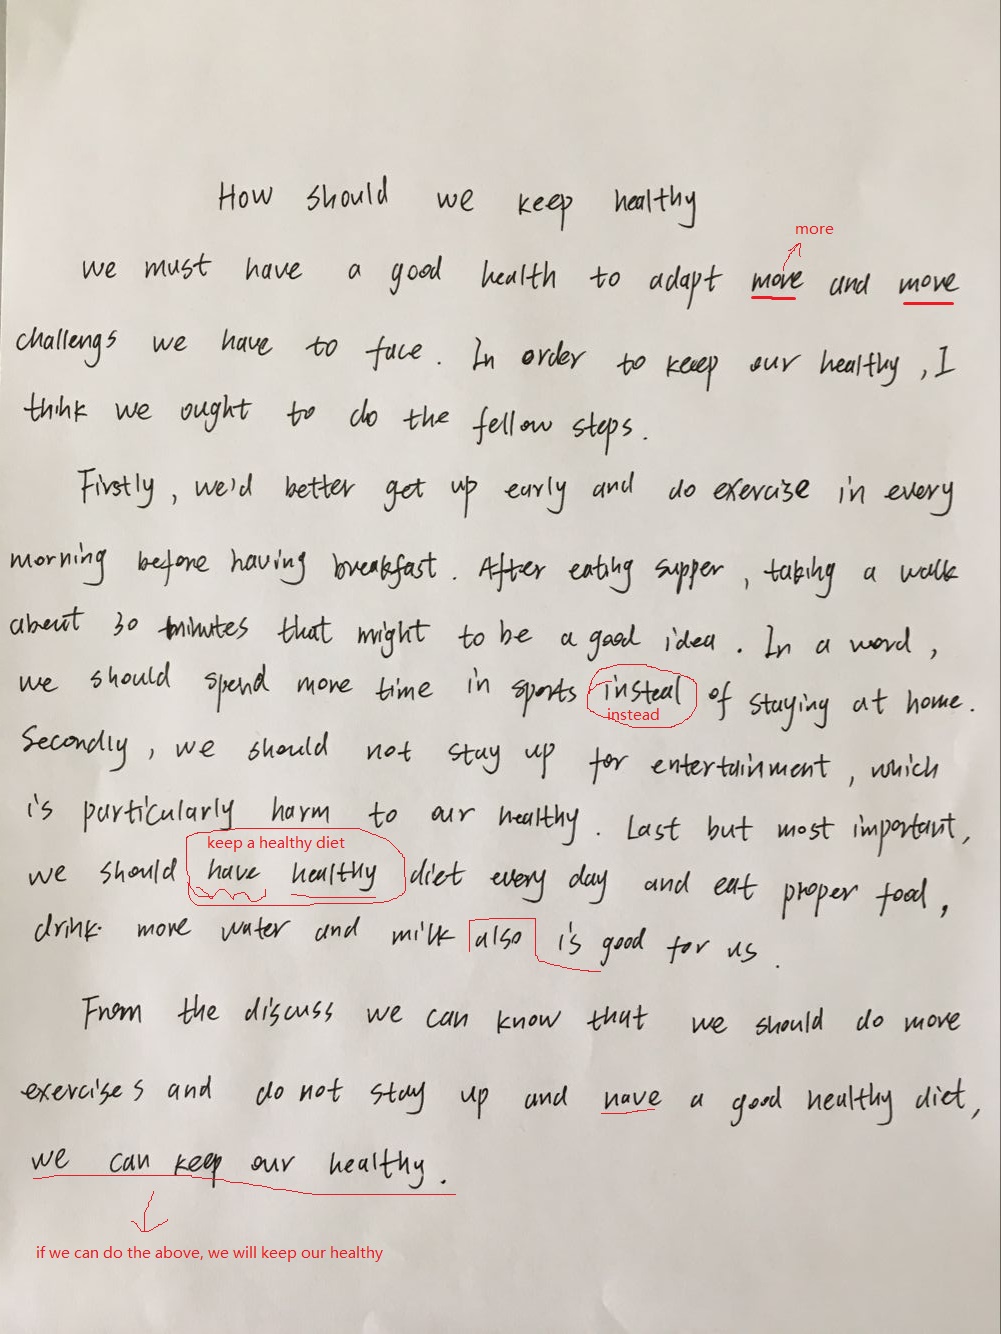 How should we keep healthy
more
we must have a good health to adapt move and move
challengs we have to face. In order to keep our healthy, I
think we ought to do the fellow steps.
Firstly, we'd better get up early and do exercise in every
morning before having breakfast. After eating supper, taking a walk
about 30 minutes that might to be a good idea. In a word,
we should spend more time in sports insteal of staying at home.
instead
Secondly, we should not stay up for entertainment, which
is particularly harm to our healthy. Last but most important,
keep a healthy diet
we should have healthy diet every day and eat proper food,
drink more water and milk also is good for us.
From the discuss we can know that we should do more
exercises and do not stay up and have a good healthy diet,
we can keep our healthy.
if we can do the above, we will keep our healthy